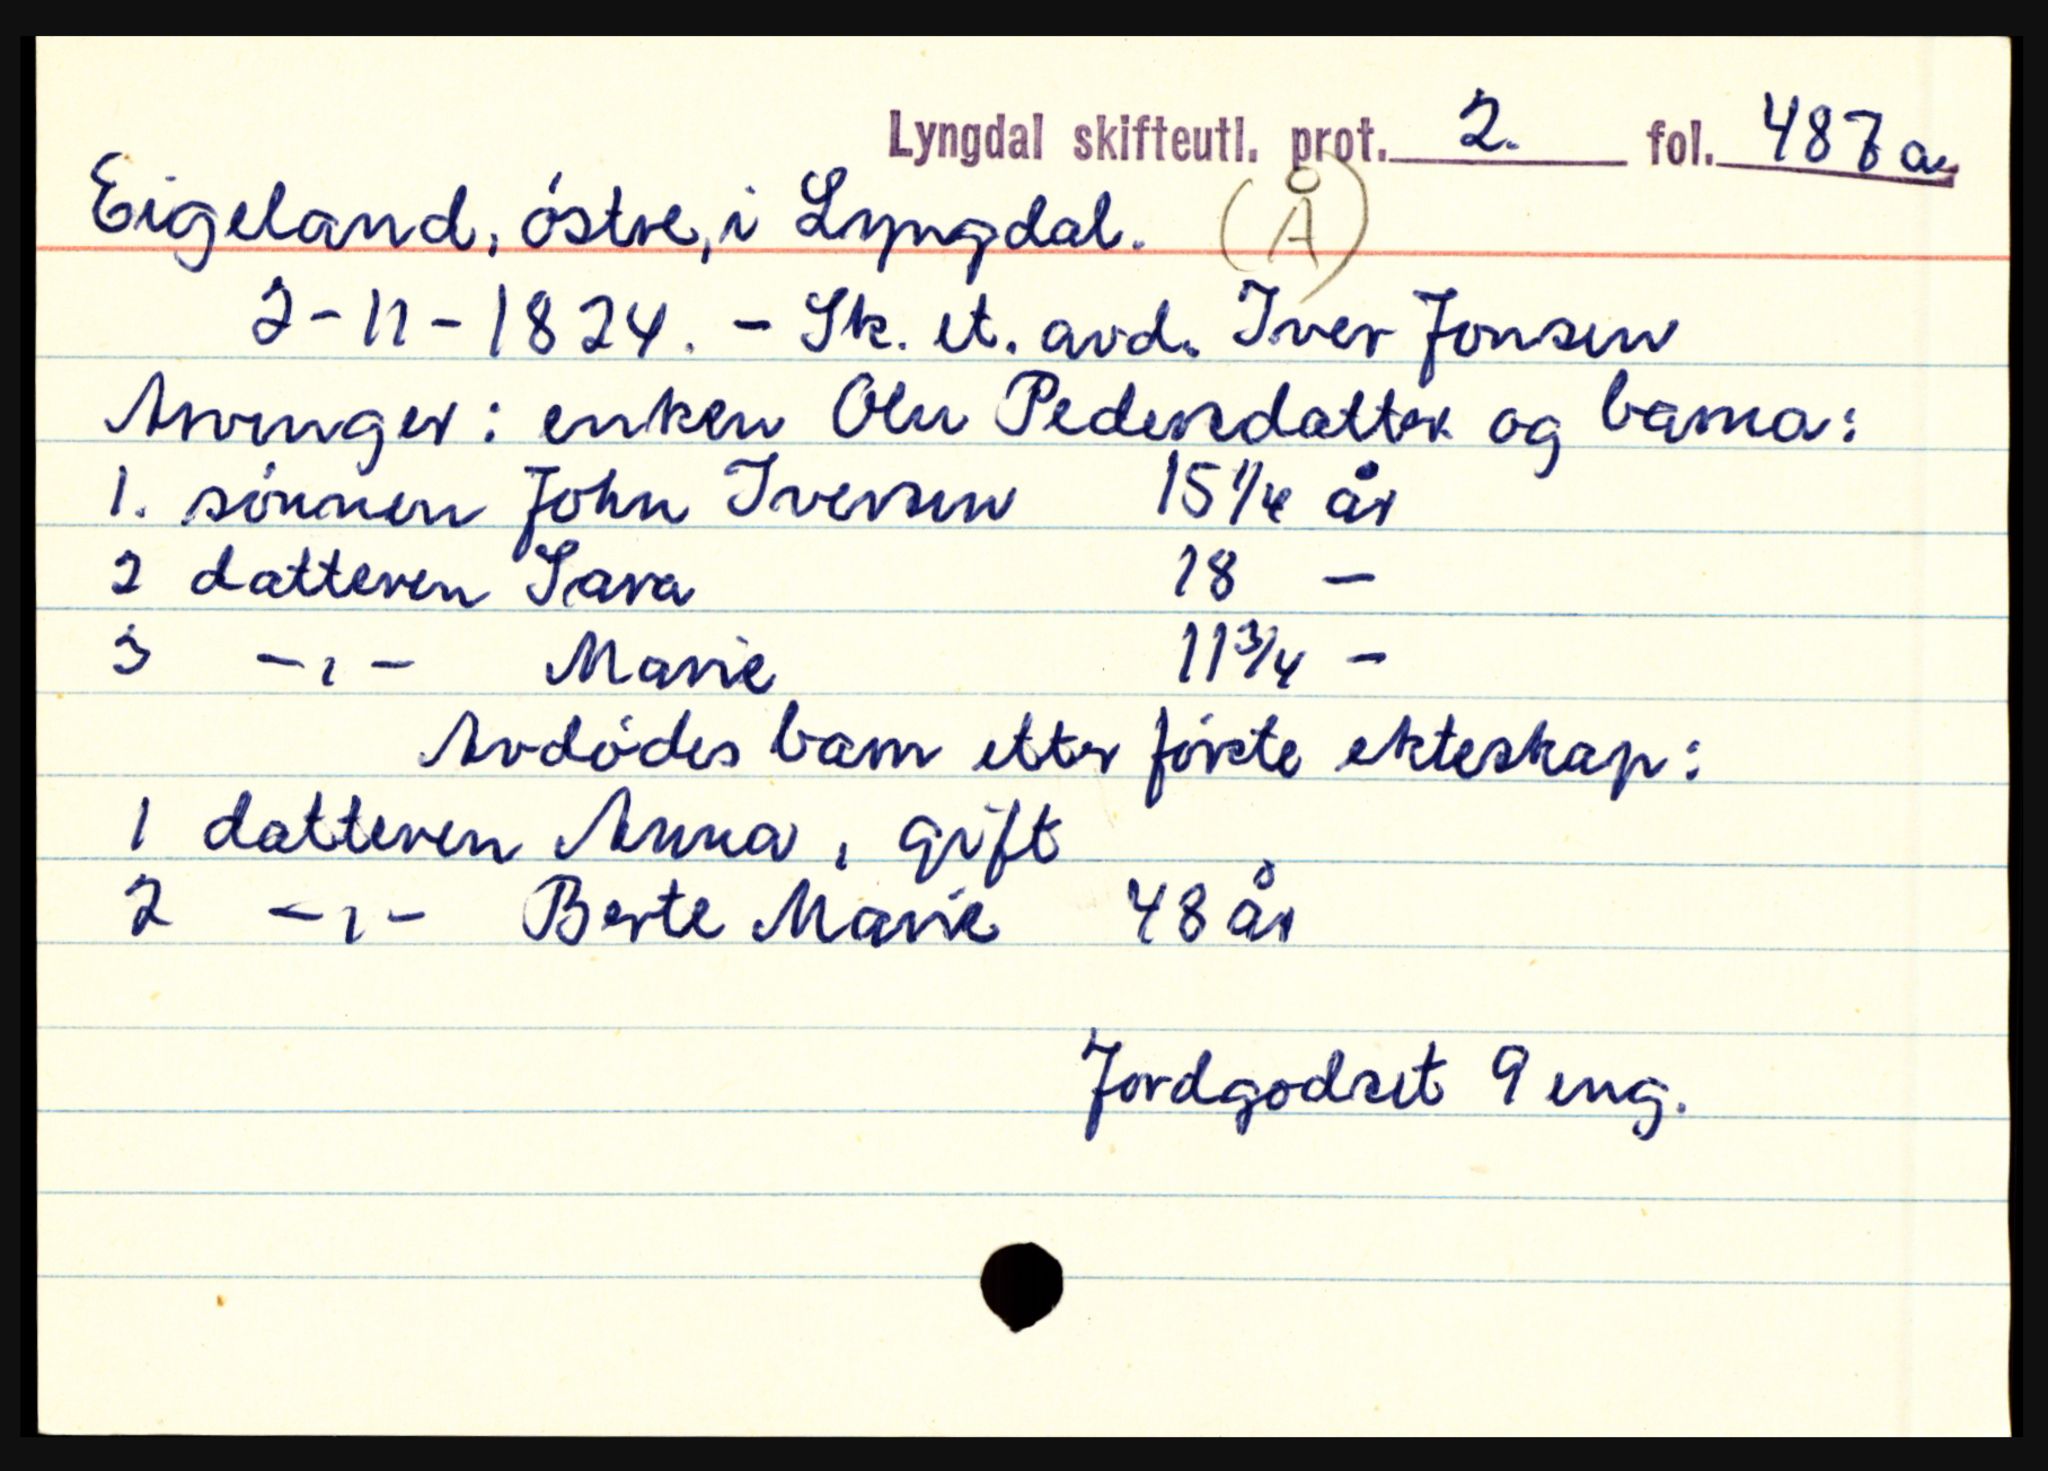 Lyngdal skifteutl. prot. 2. fol. 487a
Eigeland, østre, i Lyngdal. (Å)
2-11-1824. - Sk. et. avd. Iver Jonsen
Arvinger: enken Olu Pedersdatter og barna:
1. sønnen John Iversen 15 1/4 år
2 datteren Sara 18 -
3 -,- Marie 11 3/4 -
Avdødes barn etter første ekteskap:
1 datteren Anna, gift
2 -,- Berte Marie 48 år
Jordgodset 9 eng.